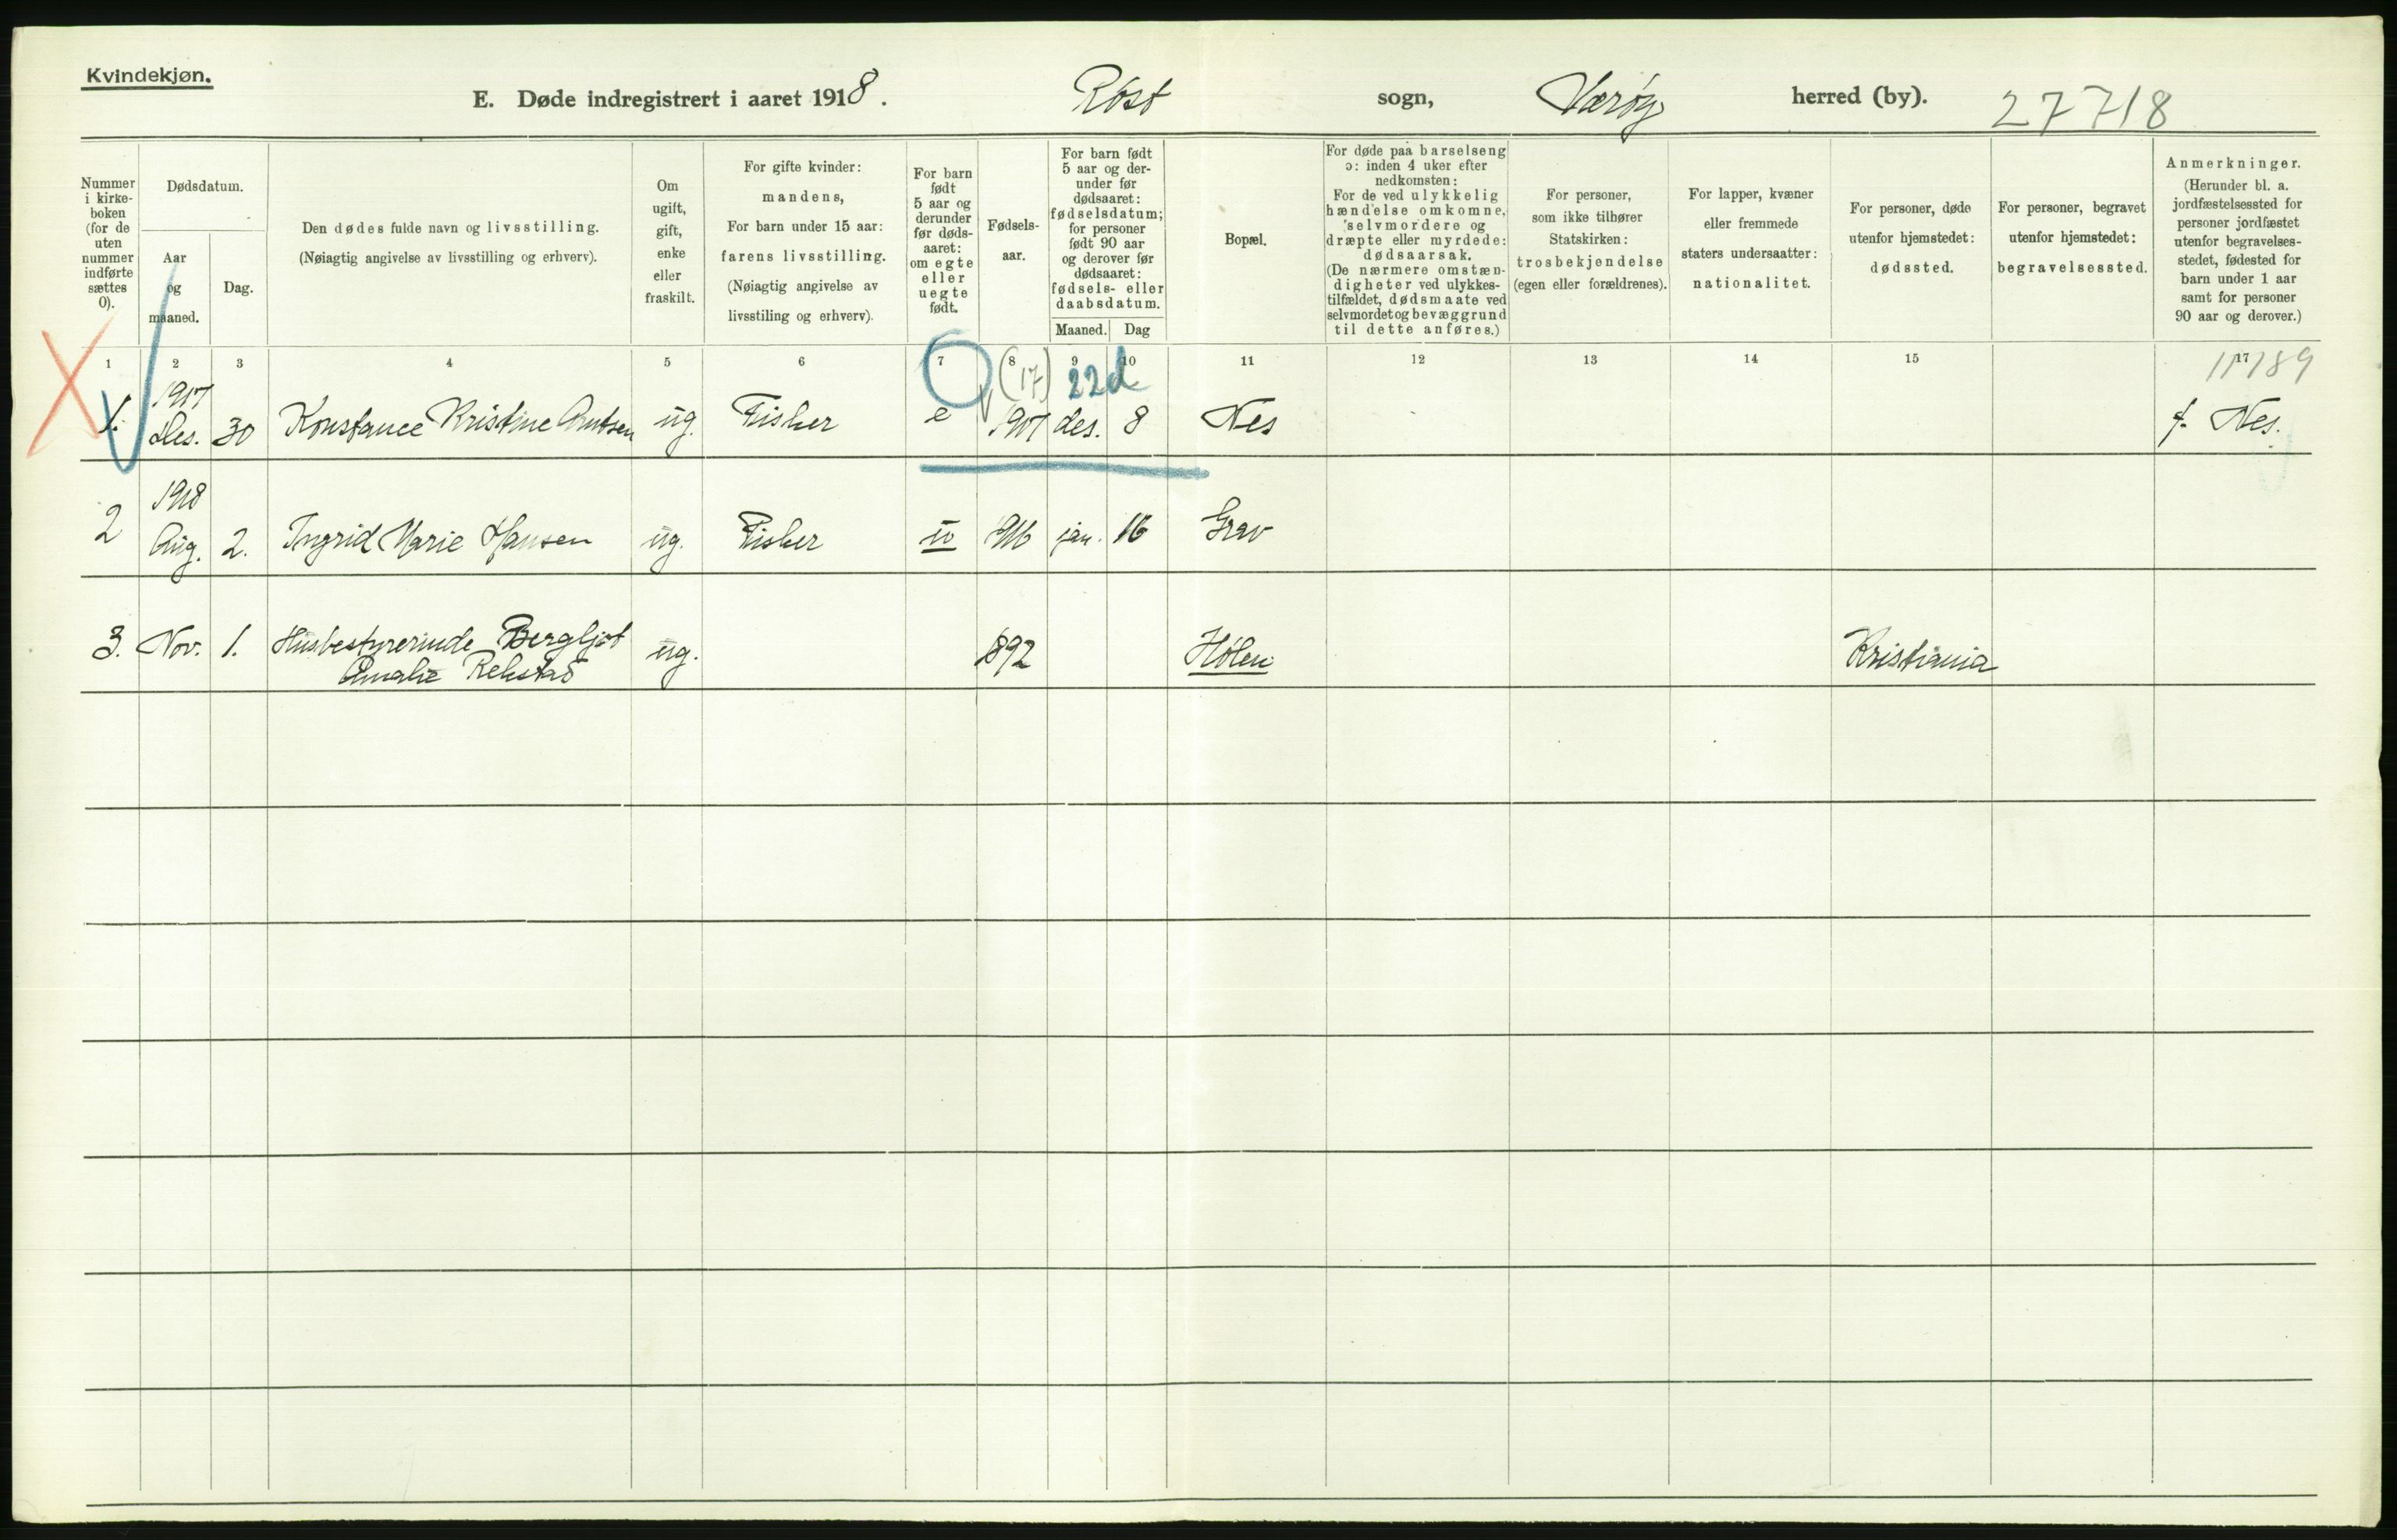 Kvindekjøn.
E. Døde indregistrert i aaret 1918. Röst sogn, Værøy herred (by). 27718
Nummer
i kirke-
boken
(for de
uten
nummer
indførte
sættes
0).
Dødsdatum.
Aar
og
maaned.
Dag.
Den dødes fulde navn og livsstilling.
(Nøiagtig angivelse av livsstilling og erhverv).
Om
ugift,
gift,
enke
eller
fraskilt.
For gifte kvinder:
mandens,
For barn under 15 aar:
farens livsstilling.
(Nøiagtig angivelse av
livsstiling og erhverv).
For barn
født
5 aar og
derunder
før døds-
aaret:
om egte
eller
uegte
født.
Fødsels-
aar.
For barn født
5 aar og der-
under før
dødsaaret:
fødselsdatum;
for personer
født 90 aar
og derover før
dødsaaret:
fødsels- eller
daabsdatum.
Maaned. Dag
Bopæl.
For døde paa barselseng
ɔ: inden 4 uker efter
nedkomsten:
For de ved ulykkelig
hændelse omkomne,
selvmordere og
dræpte eller myrdede:
dødsaarsak.
(De nærmere omstæn-
digheter ved ulykkes-
tilfældet, dødsmaate ved
selvmordet og bevæggrund
til dette anføres.)
For personer,
som ikke tilhører
Statskirken:
trosbekjendelse
(egen eller forældrenes).
For lapper, kvæner
eller fremmede
staters undersaatter:
nationalitet.
For personer, døde
utenfor hjemstedet:
dødssted.
For personer, begravet
utenfor hjemstedet:
begravelsessted.
Anmerkninger.
(Herunder bl. a.
jordfæstelsessted for
personer jordfæstet
utenfor begravelses-
stedet, fødested for
barn under 1 aar
samt for personer
90 aar og derover.)
1 2 3 4 5 6 7 8 9 10 11 12 13 14 15 17
(17) 22d
1917
1. Des. 30 Konstance Kristine Antsen ug. Fisker e 1917 des. 8 Nes f. Nes.
1918
2 Aug. 2. Ingrid Marie Hansen ug. Fisker u 1916 jan. 16 Grav
3. Nov. 1. Husbestyrerinde Bergljot ug. 1892 Holen Kristiania
Amalie Rekstad